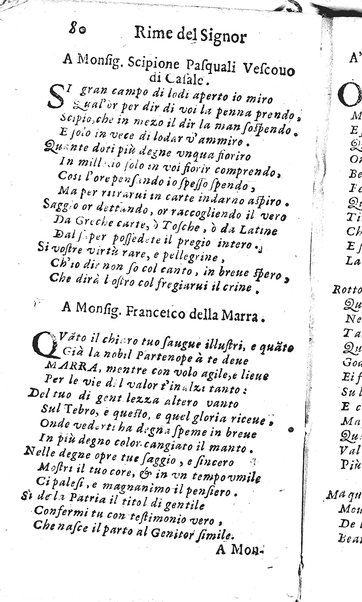 80 Rime del Signor
A Monsig. Scipione Pasquali Vescovo
di Casale.
SI gran campo di lodi aperto io miro
Qual'or per dir di voi la penna prendo,
Scipio, che in mezo il dir la man sospendo.
E solo in vece di lodar v'ammiro.
Quante doti più degne unqua fioriro
In mill'    solo in voi fiorir comprendo,
Così l'ore pensando io spesso spendo,
Ma per ritrarui in carte indarno aspiro.
Saggio or dettando, or raccogliendo il vero
Da Greche carte, ò Tosche, ò da Latine
Dal saper possedete il pregio intero.
Si vostre virtù rare, e pellegrine,
Ch'io dir non so col canto, in breue spero,
Che dirà l'ostro col fregiarui il crine.
A Monsig. Francesco della Marra.
QVãto il chiaro tuo sangue illustri, e quãto
Già la nobil Partenope à te deue
MARRA, mentre con volo agile, e lieue
Per le vie del valor t'inalzi tanto:
Del tuo di gentilezza altero vanto
Sul Tebro, e questo, e quel gloria riceue,
Onde vederti ha degna speme in breue
In più degno color cangiato il manto.
Nelle degne opre tue saggio, e sincero
Mostri il tuo core, & in un tempo vmile
Ci palesi, e magnanimo il pensiero.
Sì de la Patria il titol di gentile
Confermi tu con testimonio vero,
Che nasce il parto al Genitor simile.
A Mon-